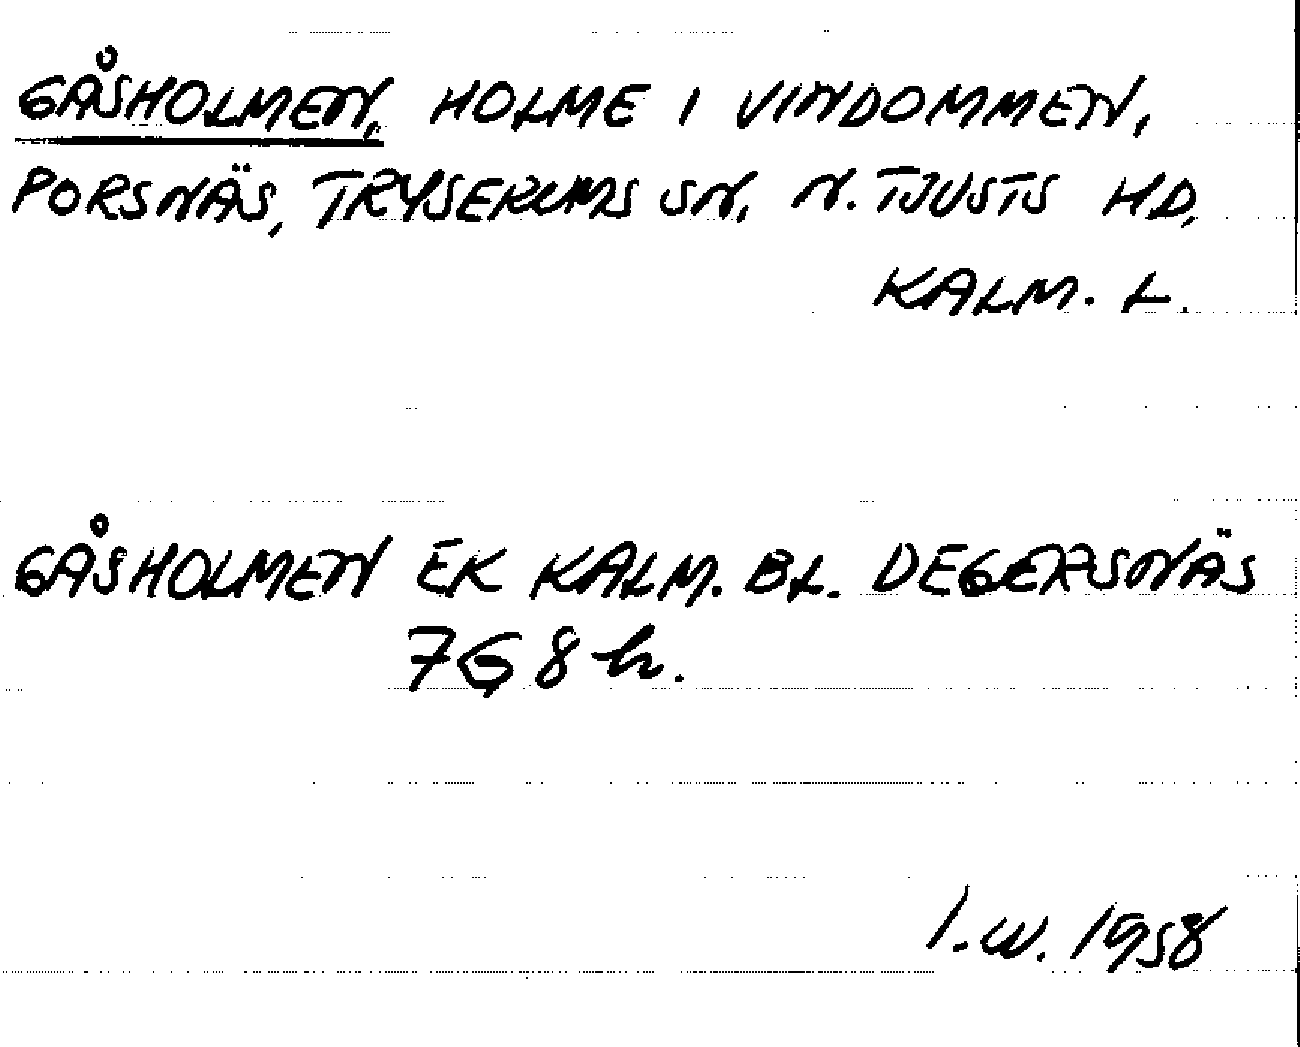 GÅSHOLMEN, HOLME I VINDOMMEN,
PORSNÄS, TRYSERUMS SN, N. TJUSTS HD,
KALM. L.
GÅSHOLMEN EK KALM. BL. DEGERSNÄS
7G 8h.
I.W. 1958